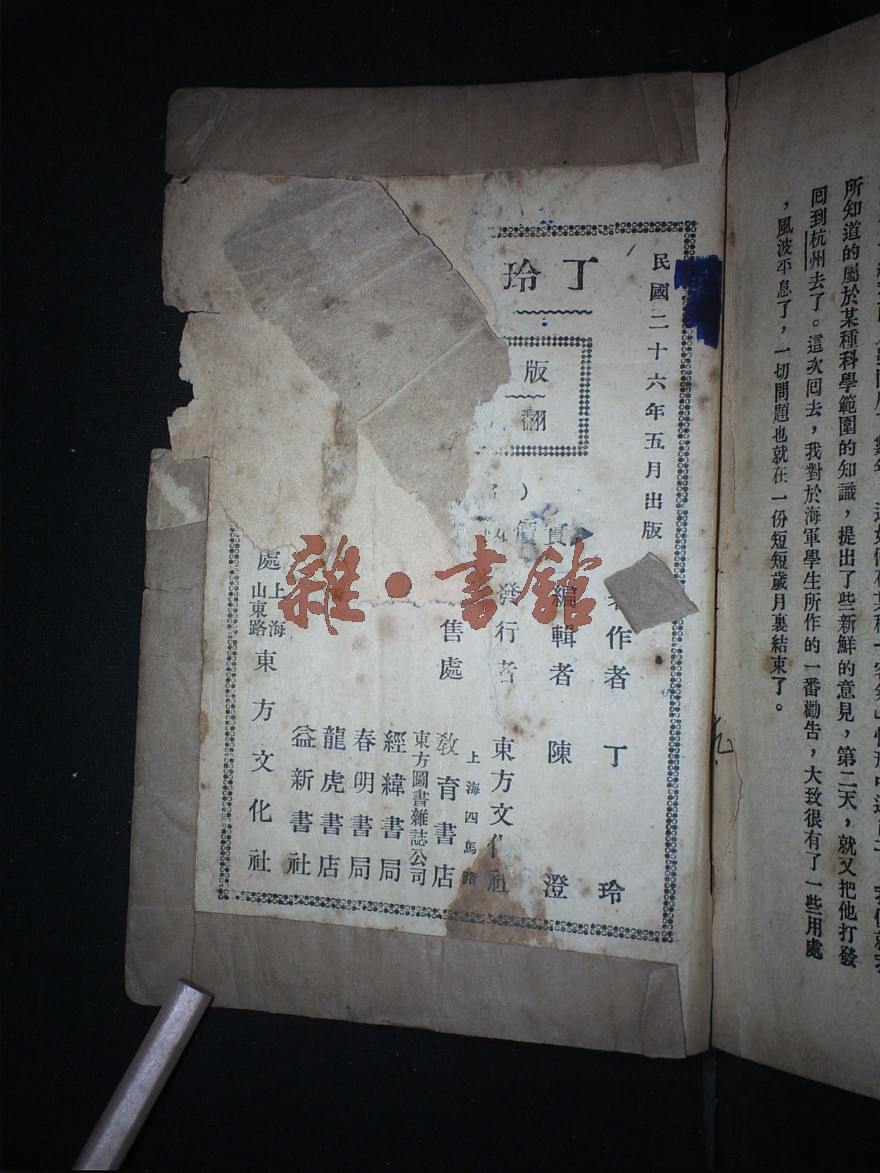 所知道的屬於某種科學範圍的知識，提出了些新鮮的意見，第二天，就又把他打發
回到杭州去了。這次回去，我對於海軍學生所作的一番勸告，大致很有了一些用處
，風波平息了，一切問題也就在一份短短歲月裏結束了。
民國二十六年五月出版
丁玲
版
翻
實價
作者 丁玲
編輯者 陳澄
發行者 東方文化社
上海四馬路
售處 教育書店
東方圖書雜誌公司
經緯書局
春明書局
龍虎書店
益新書社
處 上海山東路 東方文化社
雜·書館